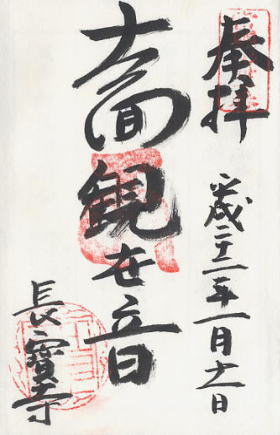 奉拝
平成二十二年一月十一日
十一面観世音
長寳寺